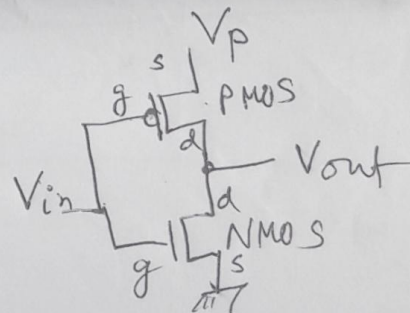 Vp
s
g
PMOS
d
Vout
Vin
d
NMOS
g
s